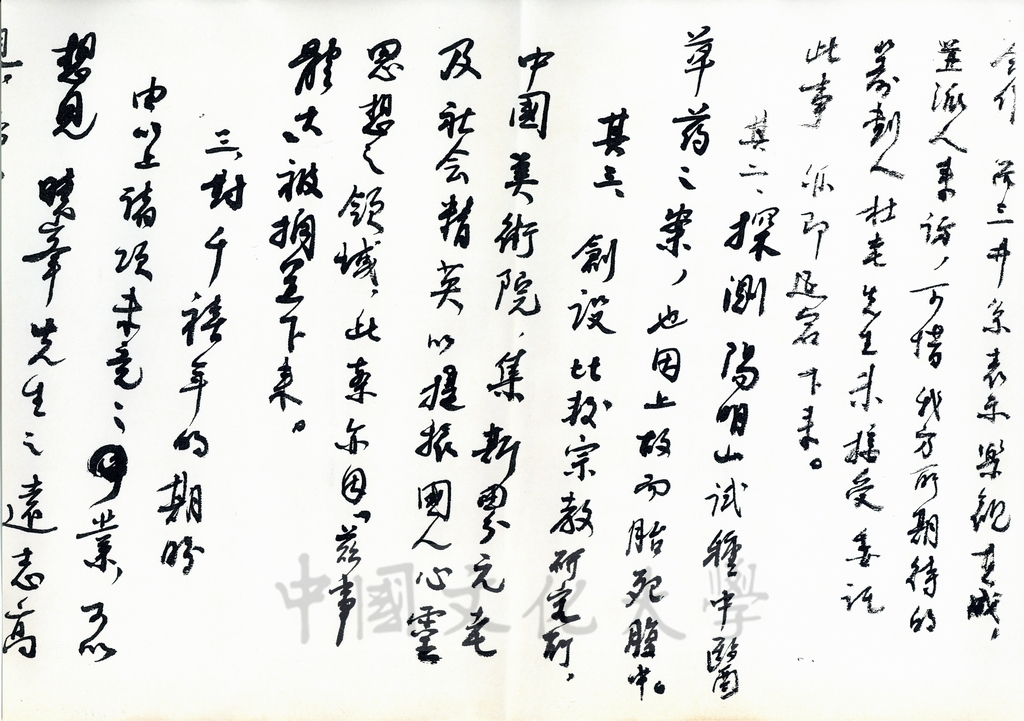 合作 而三井系表示樂觀其成，
並派人來訪，可惜我方所期待的
籌劃人杜老先生未接受委託
此事 亦即延宕下來。
其二、探測陽明山試種中醫
草药之案，也因上故而胎死腹中。
其三、創設比較宗教研究所，
中國美術院，集新男女元老
及社会精英以提振國人心靈
思想之領域，此案亦因“茲事
體大”被擱置下來。
三、對千禧年的期盼
由以上諸項未竟之業，可以
想見 曉峯先生之遠志高